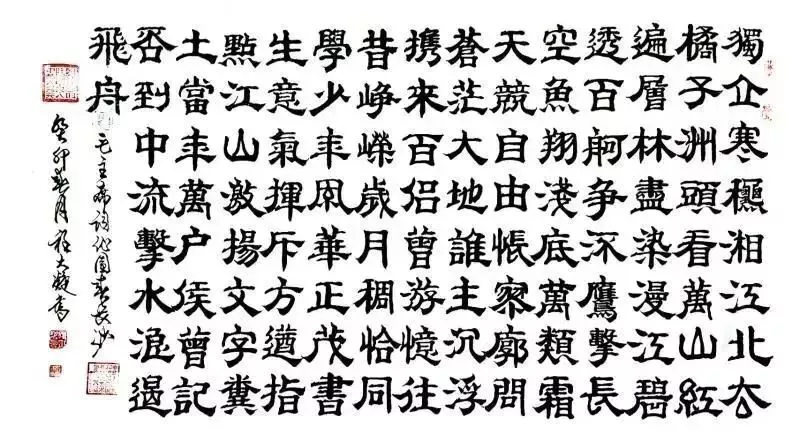 獨立寒穐湘江北去
橘子洲頭看萬山紅
遍層林盡染漫江碧
透百舸争流鷹擊長
空魚翔淺底萬類霜
天競自由悵寥廓問
蒼茫大地誰主沉浮
携來百侣曾游憶往
昔峥嶸歲月稠恰同
學少年風華正茂書
生意氣揮斥方遒指
點江山激揚文字糞
土當年萬户侯曾記
否到中流擊水浪遏
飛舟
毛主席詞沁園春長沙
癸卯春月大書